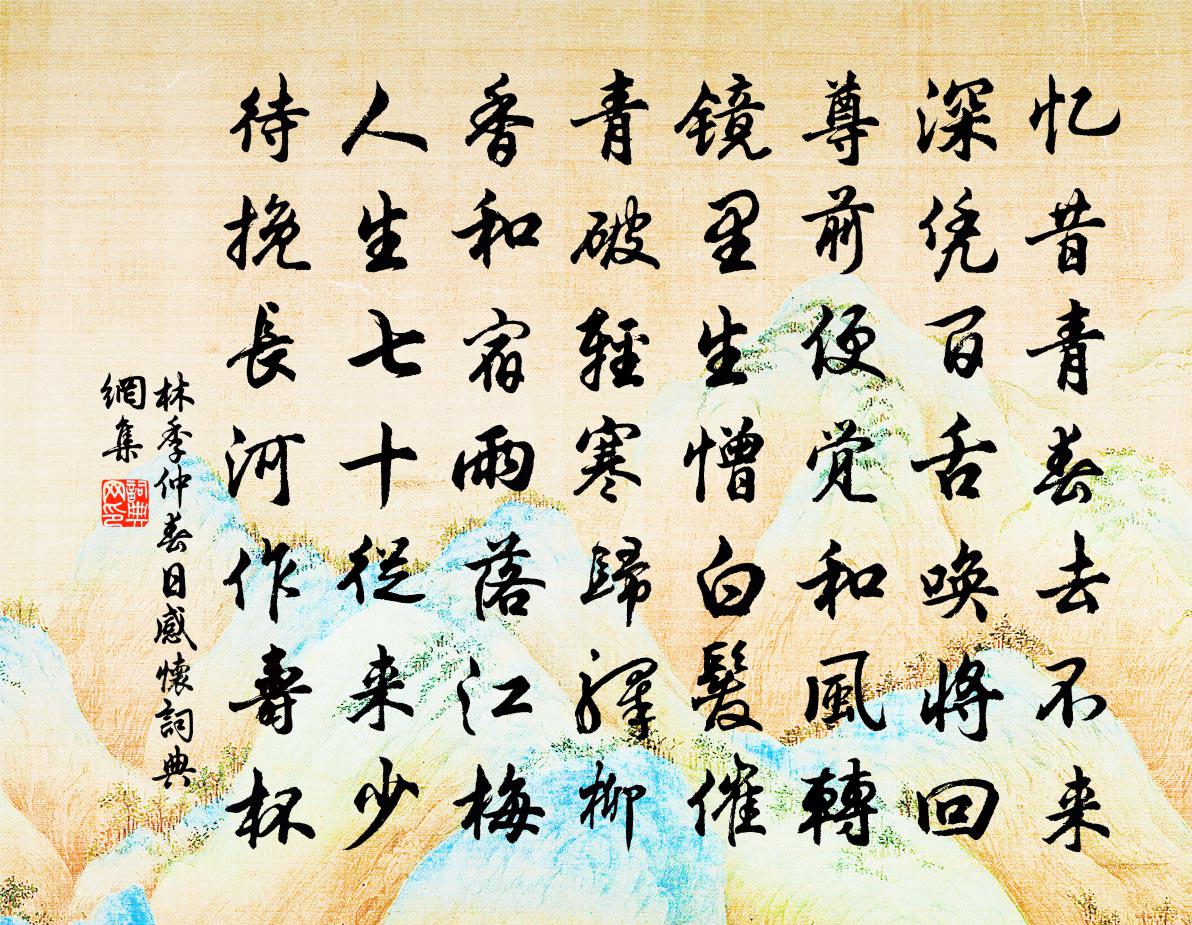 忆昔青春去不来
深凭百舌唤将回
尊前便觉和風轉
镜里生憎白髮催
青破輕寒歸驛柳
香和宿雨落江梅
人生七十從来少
待挽長河作壽杯
林季仲春日感懷詞典
網集
詞典
网印